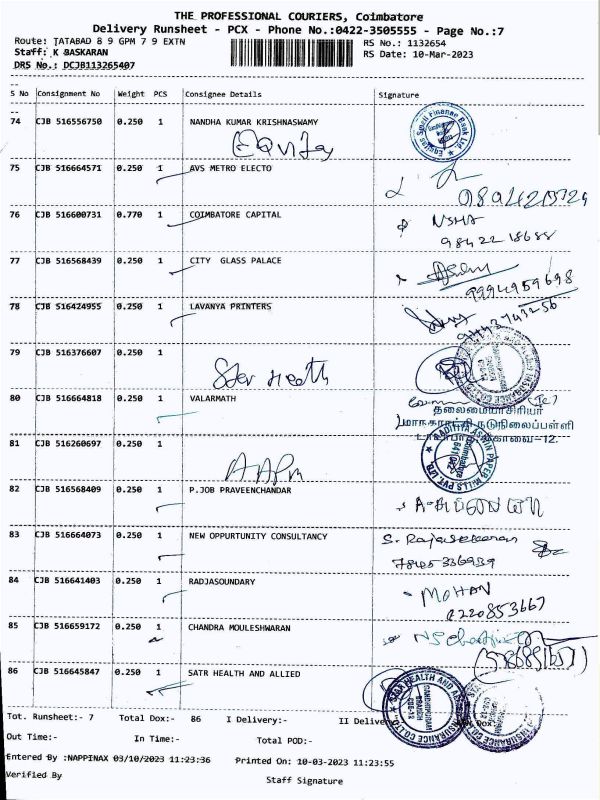 THE PROFESSIONAL COURIERS, Coimbatore
Delivery Runsheet - PCX - Phone No.:0422-3505555 - Page No.:7
Route: TATABAD 8 9 GPM 7 9 EXTN RS No.: 1132654
Staff: K BASKARAN RS Date: 10-Mar-2023
DRS No.: DCJB113265407
S No Consignment No Weight PCS Consignee Details Signature
74 CJB 516556750 0.250 1 NANDHA KUMAR KRISHNASWAMY
Equitas Small Finance Bank Ltd.
75 CJB 516664571 0.250 1 AVS METRO ELECTO
76 CJB 516600731 0.770 1 COIMBATORE CAPITAL
NSHA
98422 18688
77 CJB 516568439 0.250 1 CITY GLASS PALACE
9994959698
78 CJB 516424955 0.250 1 LAVANYA PRINTERS
9443743256
79 CJB 516376607 0.250 1
Star Health
80 CJB 516664818 0.250 1 VALARMATH
தலைமையாசிரியர்
மாநகராட்சி நடுநிலைப்பள்ளி
கோவை-12.
81 CJB 516260697 0.250 1
82 CJB 516568409 0.250 1 P.JOB PRAVEENCHANDAR
83 CJB 516664073 0.250 1 NEW OPPURTUNITY CONSULTANCY
S. Rajasekaran
7845336939
84 CJB 516641403 0.250 1 RADJASOUNDARY
MOHAN
85 CJB 516659172 0.250 1 CHANDRA MOULESHWARAN
86 CJB 516645847 0.250 1 SATR HEALTH AND ALLIED
Tot. Runsheet:- 7 Total Dox:- 86 I Delivery:- II Delivery Dox:
Out Time:- In Time:- Total POD:-
Entered By :NAPPINAX 03/10/2023 11:23:36 Printed On: 10-03-2023 11:23:55
Verified By Staff Signature